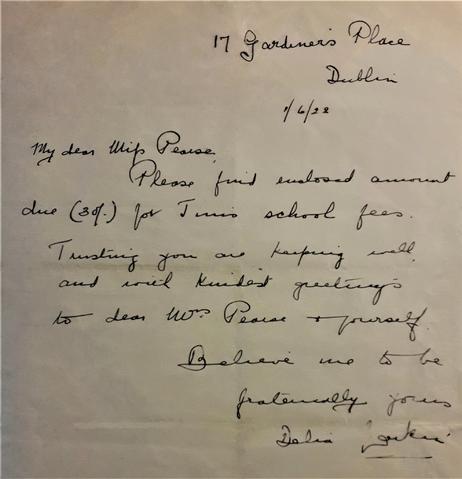 17 Gardiner's Place
Dublin
1/6/22
My dear Miss Pearse,
Please find enclosed amount
due (30/.) for Jim's school fees.
Trusting you are keeping well
and with kindest greetings
to dear Mrs Pearse & yourself.
Believe me to be
fraternally yours
Delia Larkin